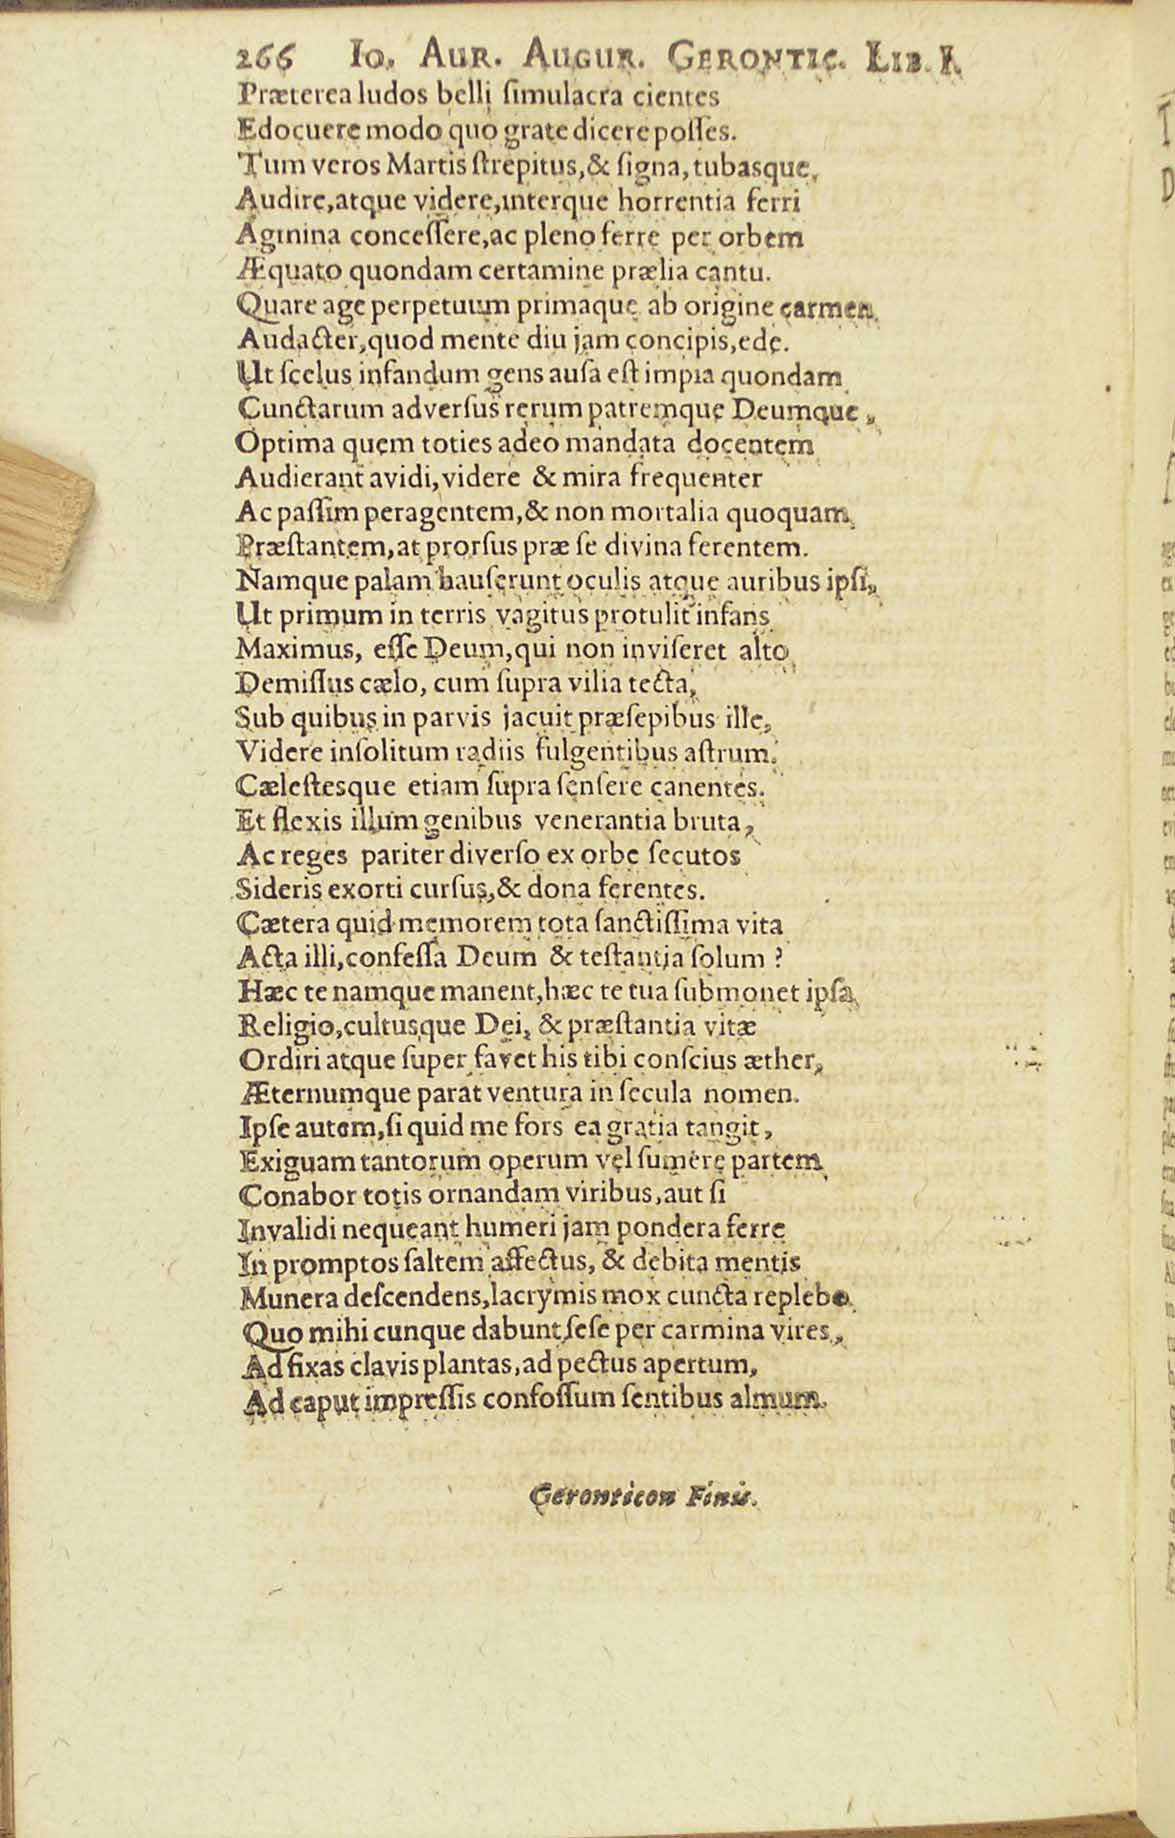 266 Io. Aur. Augur. Gerontic. Lib. I.
Præterea ludos belli ſimulacra cientes
Edocuere modo quo grate dicere poſſes.
Tum veros Martis ſtrepitus, & ſigna, tubasque,
Audire, atque videre, interque horrentia ferri
Agmina conceſſere, ac pleno ferre per orbem
Æquato quondam certamine prælia cantu.
Quare age perpetuum primaque ab origine carmen
Audacter, quod mente diu jam concipis, ede.
Ut ſcelus infandum gens auſa eſt impia quondam
Cunctarum adverſus rerum patremque Deumque,
Optima quem toties adeo mandata docentem
Audierant avidi, videre & mira frequenter
Ac paſſim peragentem, & non mortalia quoquam
Præſtantem, at prorſus præ ſe divina ferentem.
Namque palam hauſerunt oculis atque auribus ipſi,
Ut primum in terris vagitus protulit infans
Maximus, eſſe Deum, qui non inviſeret alto
Demiſſus cælo, cum ſupra vilia tecta,
Sub quibus in parvis jacuit præſepibus ille,
Videre inſolitum radiis fulgentibus aſtrum.
Cæleſtesque etiam ſupra ſenſere canentes.
Et flexis illum genibus venerantia bruta,
Ac reges pariter diverſo ex orbe ſecutos
Sideris exorti curſus, & dona ferentes.
Cætera quid memorem tota ſanctiſſima vita
Acta illi, confeſſa Deum & teſtantia ſolum ?
Hæc te namque manent, hæc te tua ſubmonet ipſa
Religio, cultusque Dei, & præſtantia vitæ
Ordiri atque ſuper favet his tibi conſcius æther,
Æternumque parat ventura in ſecula nomen.
Ipſe autem, ſi quid me fors ea gratia tangit,
Exiguam tantorum operum vel ſumere partem
Conabor totis ornandam viribus, aut ſi
Invalidi nequeant humeri jam pondera ferre
In promptos ſaltem affectus, & debita mentis
Munera deſcendens, lacrymis mox cuncta replebo.
Quo mihi cunque dabunt ſeſe per carmina vires,
Ad fixas clavis plantas, ad pectus apertum,
Ad caput impreſſis confoſſum ſentibus almum.
Geronticon Finis.